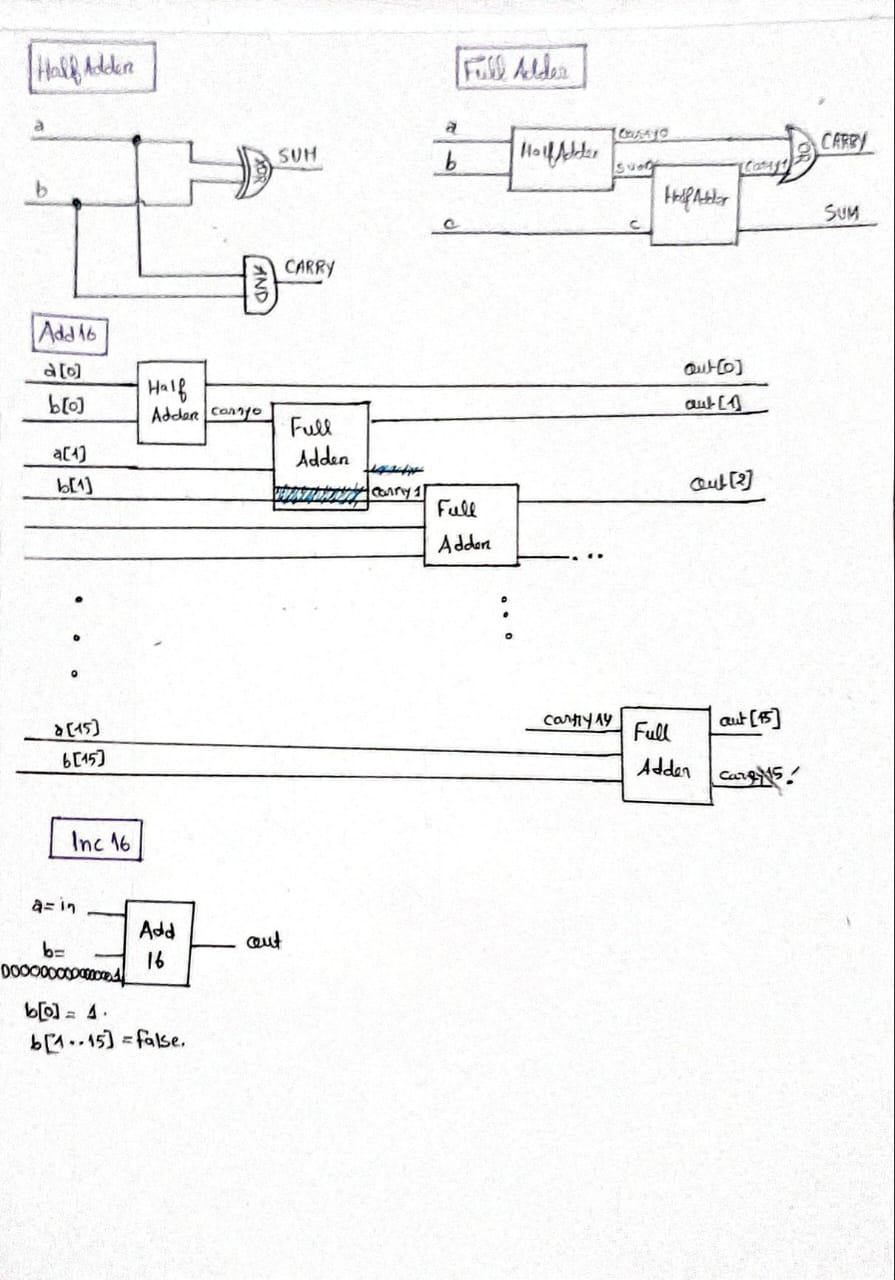 Half Adder
Full Adder
a
b
XOR
SUM
AND
CARRY
a
b
c
HalfAdder
carry0
sum0
c
HalfAdder
carry1
OR
CARRY
SUM
Add16
a[0]
b[0]
Half
Adder
carry0
out[0]
out[1]
a[1]
b[1]
Full
Adder
carry1
Full
Adder
out[2]
...
a[15]
b[15]
carry14
Full
Adder
out[15]
carry15!
Inc 16
a= in
b=
0000000000000001
Add
16
out
b[0] = 1.
b[1..15] = false.